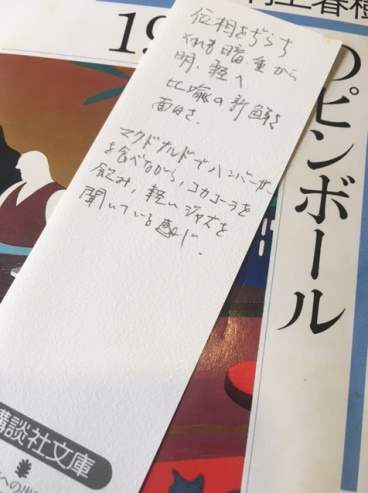 上春樹
19
のピンボール
位相をずらす
それも暗・重から
明・軽へ
比喩の新鮮さ
面白さ.
マクドナルドでハンバーガー
を食べながら、コカコーラを
飲み、軽いジャズを
聞いている感じ.
講談社文庫
への出